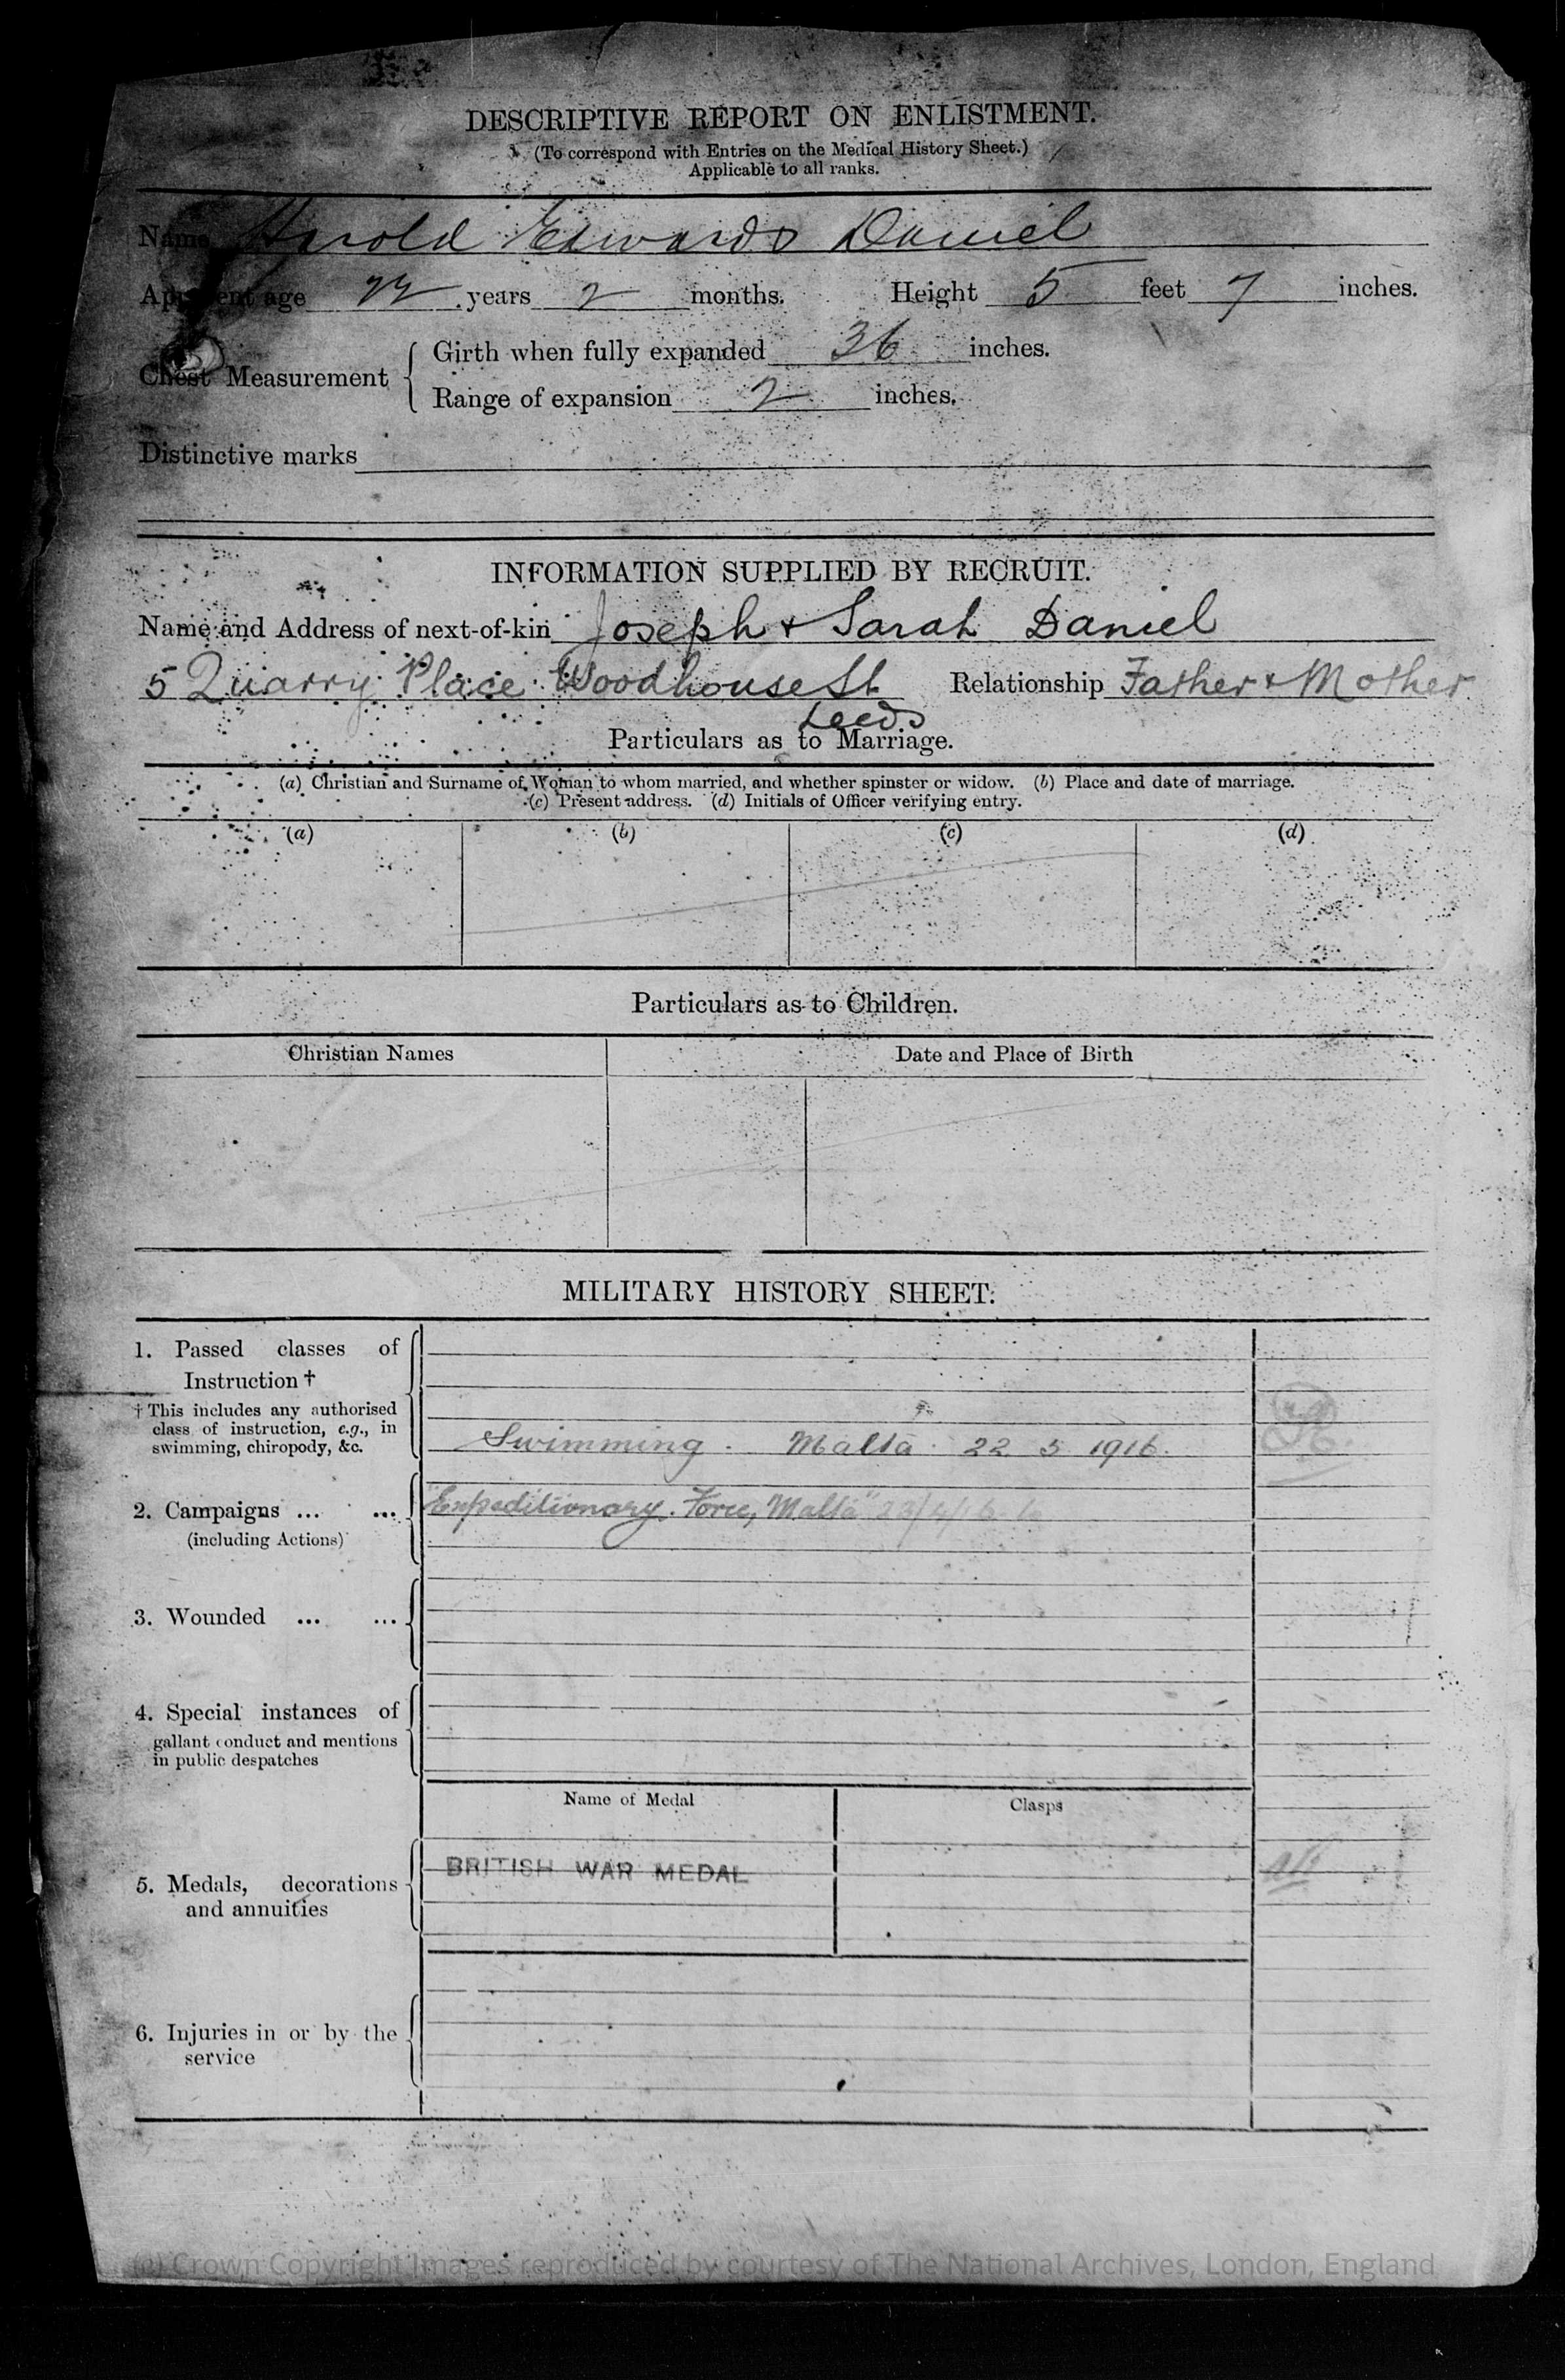 DESCRIPTIVE REPORT ON ENLISTMENT.
(To correspond with Entries on the Medical History Sheet.)
Applicable to all ranks.
Name Harold Edwards Daniel
Apparent age 22 years 2 months. Height 5 feet 7 inches.
Chest Measurement
Girth when fully expanded 36 inches.
Range of expansion 2 inches.
Distinctive marks
INFORMATION SUPPLIED BY RECRUIT.
Name and Address of next-of-kin Joseph & Sarah Daniel
5 Quarry Place Woodhouse St Relationship Father & Mother
Leeds
Particulars as to Marriage.
(a) Christian and Surname of Woman to whom married, and whether spinster or widow. (b) Place and date of marriage.
(c) Present address. (d) Initials of Officer verifying entry.
(a) (b) (c) (d)
Particulars as to Children.
Christian Names Date and Place of Birth
MILITARY HISTORY SHEET.
1. Passed classes of
Instruction †
† This includes any authorised
class of instruction, e.g., in
swimming, chiropody, &c.
Swimming. Malta. 22 5 1916.
2. Campaigns ... ...
(including Actions)
Expeditionary Force, "Malta" 23/4/16
3. Wounded ... ...
4. Special instances of
gallant conduct and mentions
in public despatches
Name of Medal Clasps
5. Medals, decorations
and annuities
BRITISH WAR MEDAL
6. Injuries in or by the
service
(c) Crown Copyright Images reproduced by courtesy of The National Archives, London, England